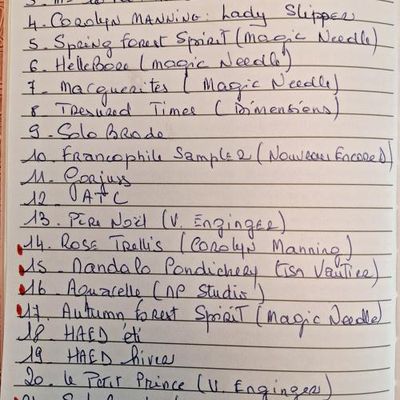 4. COROLYN MANNING: Lady Slipper
5. Spring forest Spirit (Magic Needle)
6. HelleBore (Magic Needle)
7. Macguerites (Magic Needle)
8 Tresured Times (Dimensions)
9. Solo Brode
10. Francophile Sampler (Nouveau Encored)
11. Gorjuss
12. ATC
13. Père Noël (V. Enginger)
14. Rose Trellis (Corolyn Manning)
15. Mandala Pondichery (Isa Vautier)
16. Aquarelle (NP Studio)
17. Autumn forest Spirit (Magic Needle)
18 HAED été
19 HAED hiver
20. Le Petit Prince (V. Enginger)